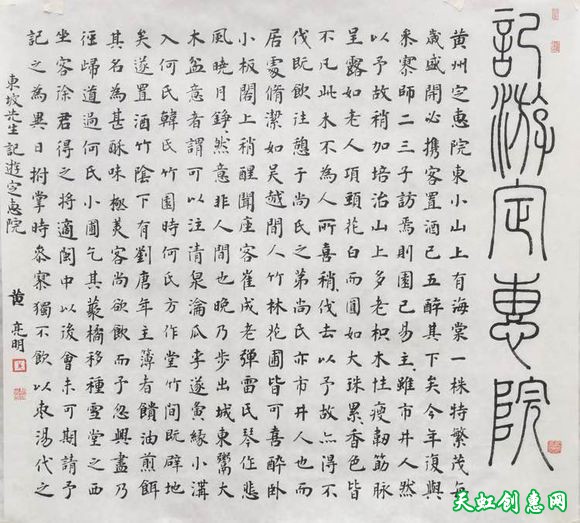 記游定惠院
黄州定惠院東小山上有海棠一株特繁茂每
歲盛開必攜客置酒已五醉其下矣今年復與
参寥師二三子訪焉則園已易主雖市井人然
以予故稍加培治山上多老枳木性瘦韌筋脉
呈露如老人項頸花白而圓如大珠累香色皆
不凡此木不為人所喜稍伐去以予故亦得不
伐既飲往憩于尚氏之第尚氏亦市井人也而
居處脩潔如吳越間人竹林花圃皆可喜醉卧
小板閣上稍醒聞座客崔成老彈雷氏琴作悲
風曉月錚然意非人間也晚乃步出城東鬻大
木盆意者謂可以注清泉瀹瓜李遂夤緣小溝
入何氏韓氏竹園時何氏方作堂竹間既辟地
矣遂置酒竹陰下有劉唐年主簿者饋油煎餌
其名為甚酥味極美客尚欲飲而予忽興盡乃
徑歸道過何氏小圃乞其藂橘移種雪堂之西
坐客徐君得之將適閩中以後會未可期請予
記之為異日拊掌時參寥獨不飲以棗湯代之
東坡先生記遊定惠院
黄亮明
天虹创意网